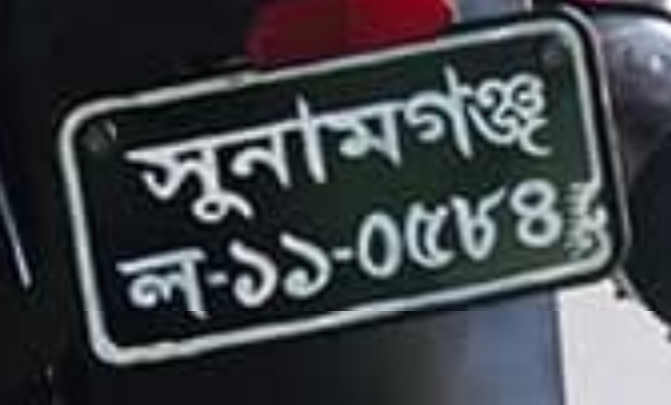 সুনামগঞ্জ
ল-১১-০৫৮৪